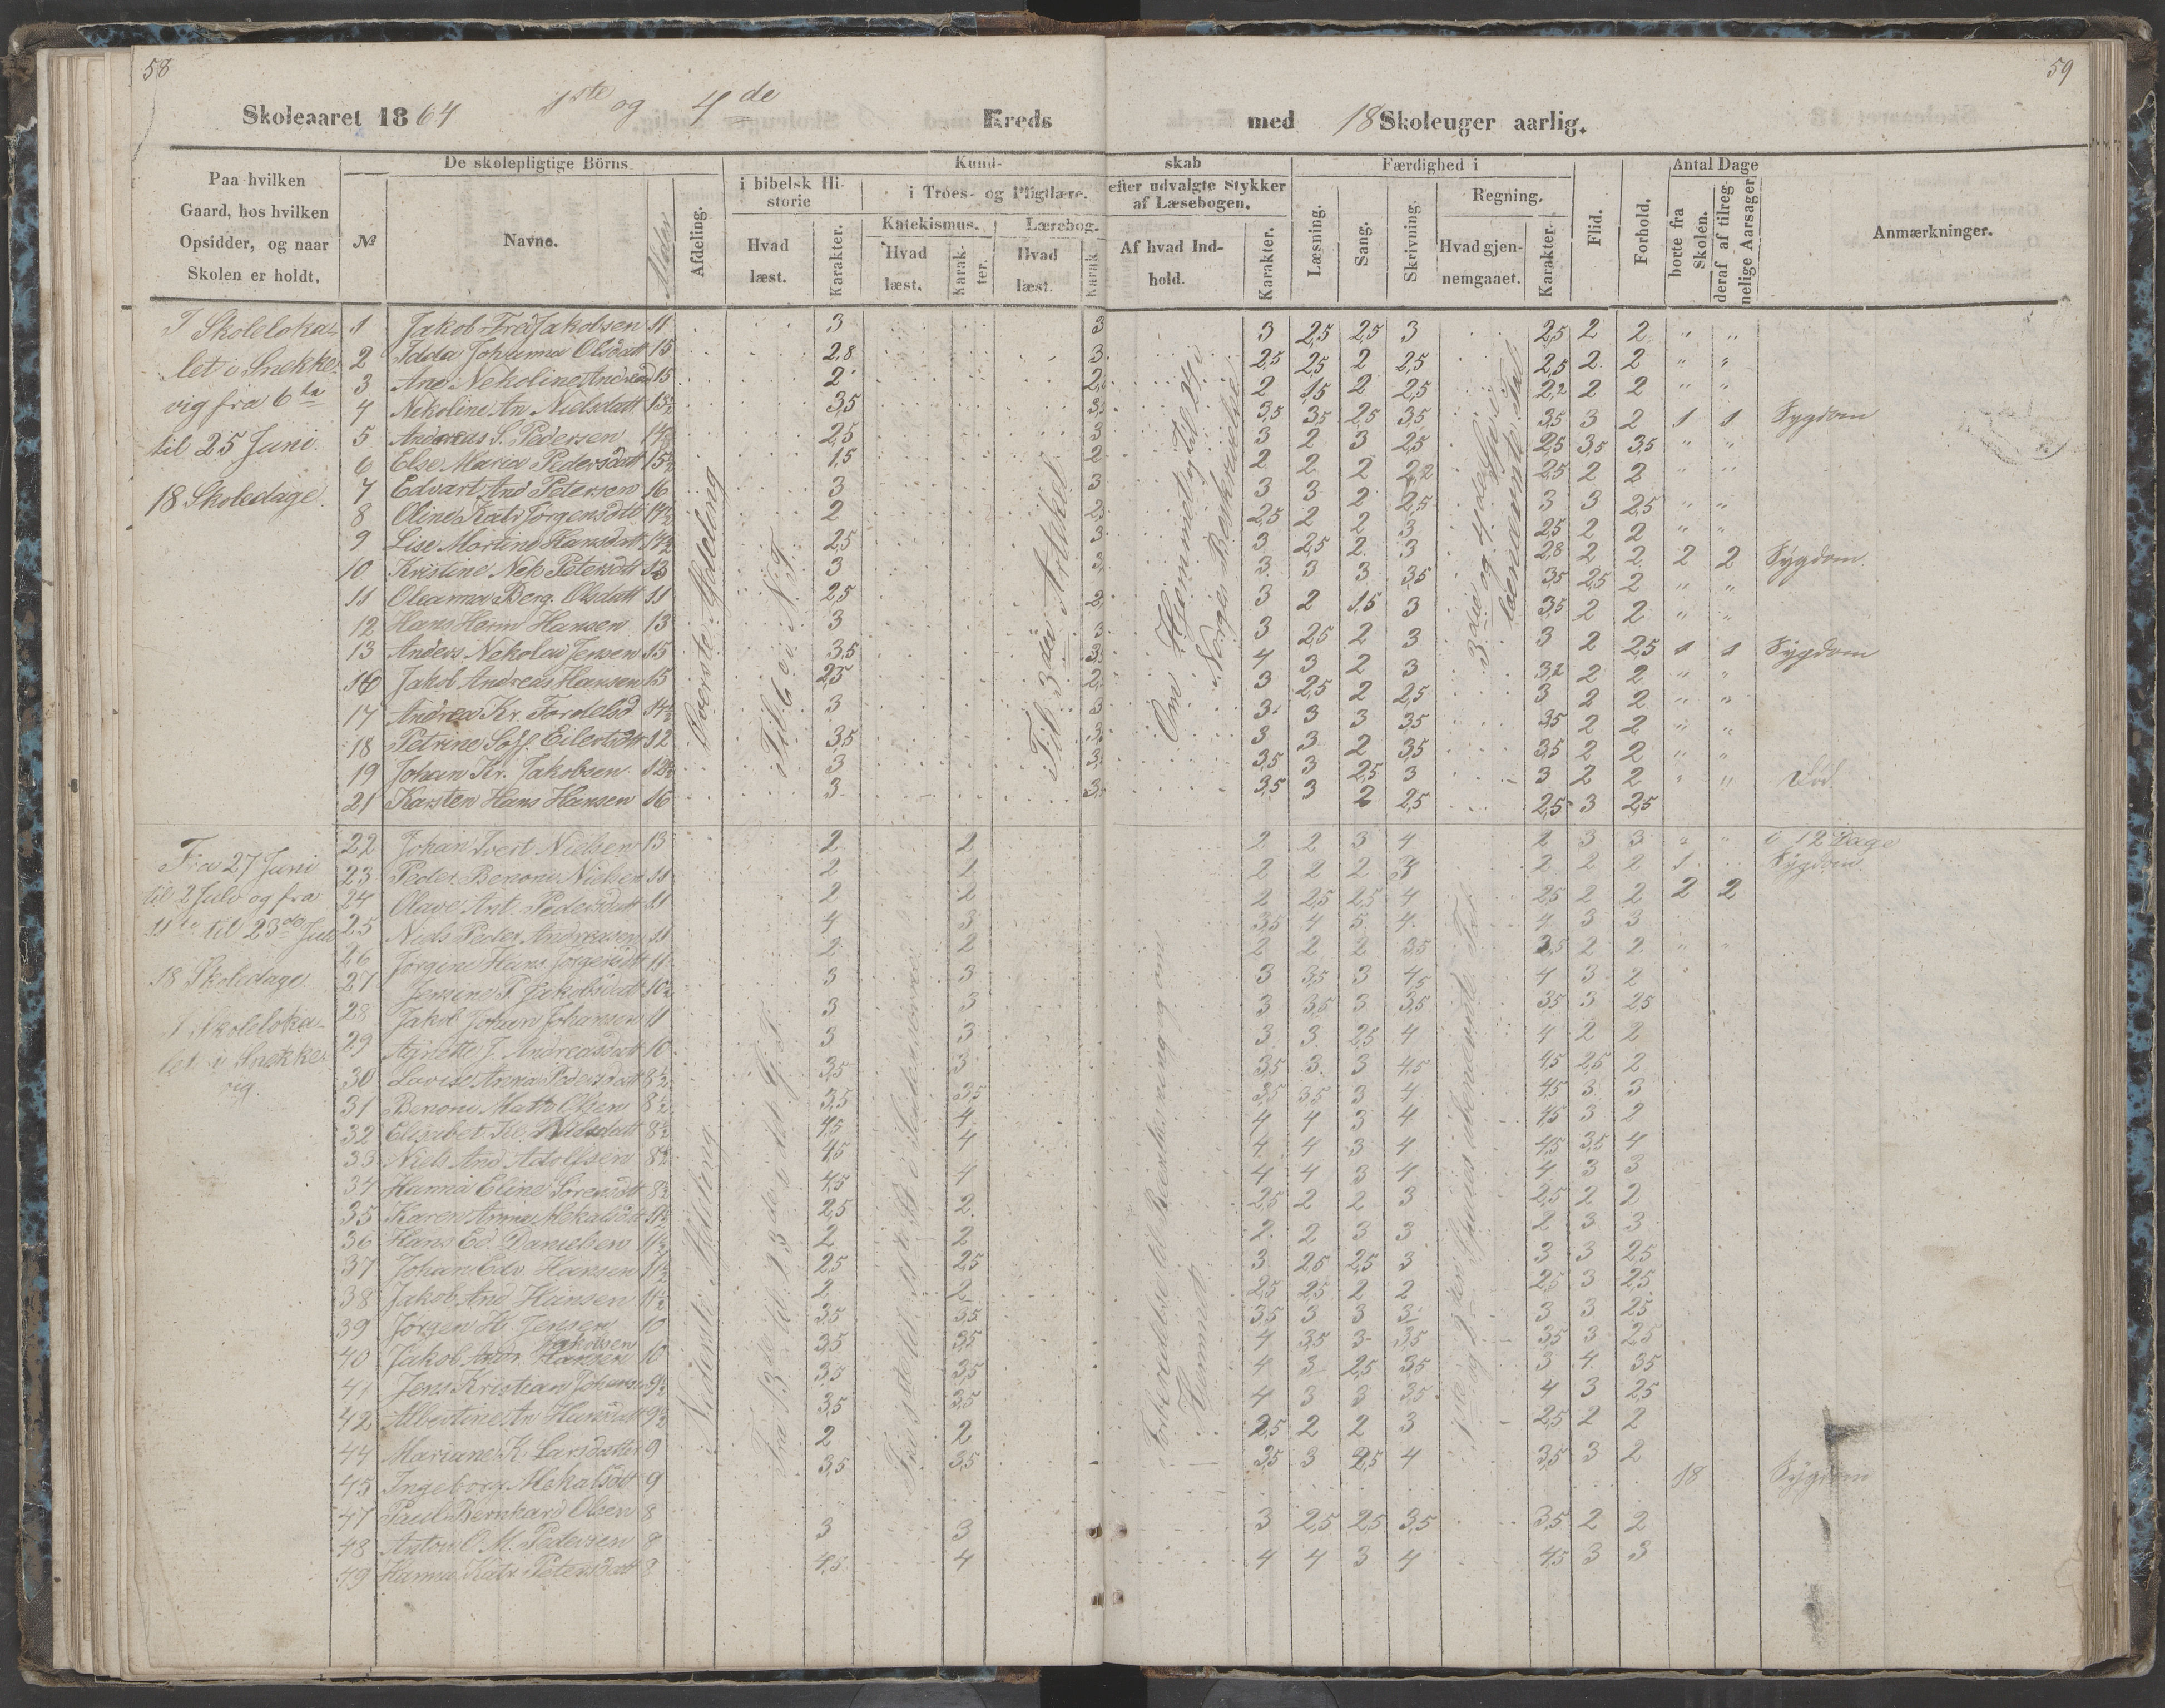 58
59
Skoleaaret 1864 1ste og 4de Kreds med 18 Skoleuger aarlig.
Paa hvilken
Gaard, hos hvilken
Opsidder, og naar
Skolen er holdt.
De skolepligtige Börns
№ Navne. Alder Afdeling.
Kund- skab
i bibelsk Hi-
storie
Hvad
læst.
Karakter.
i Troes- og Pligtlære.
Katekismus.
Hvad
læst.
Karak-
ter.
Lærebog.
Hvad
læst.
Karak
efter udvalgte Stykker
af Læsebogen.
Af hvad Ind-
hold.
Karakter.
Færdighed i
Læsning.
Sang.
Skrivning.
Regning.
Hvad gjen-
nemgaaet.
Karakter.
Flid.
Forhold.
Antal Dage
borte fra
Skolen.
deraf af tilreg-
nelige Aarsager
Anmærkninger.
I Skoleloka-
let i Snekke-
vig fra 6te
til 25 Juni.
18 Skoledage.
1 Jakob Fred Jakobsen 11 3 3 3 2,5 2,5 3 2,5 2 2 " "
2 Idda Johanna Olsdatt 15 2,8 3 2,5 2,5 2 2,5 2,5 2 2 " "
3 Ane Nekoline Andreasd 15 2 2 2 1,5 2 2,5 2,2 2 2 " "
4 Nekoline An Nielsdatt 13½ 3,5 3 3,5 3,5 2,5 3,5 3,5 3 2 1 1 Sygdom
5 Andreas S. Pedersen 14½ 2,5 3 3 2 3 2,5 2,5 3,5 3,5 " "
6 Else Maria Pedersdatt 15½ 1,5 2 2 2 2 2,2 2,5 2 2 " "
7 Edvart And Petersen 16 3 3 3 3 2 2,5 3 3 2,5 " "
8 Oline Katr Jörgensdtt 14½ 2 2,5 2 2 3 2,5 2 2 " "
9 Lise Martine Hansdatt 14½ 2,5 3 3 2,5 2 3 2,8 2 2 2 2 Sygdom.
10 Kristine Nek Petersdtt 13 3 3 3 3 3 3,5 3,5 2,5 2 " "
11 Oleanna Berg. Olsdatt 11 2,5 2 3 2 1,5 3 3,5 2 2 " "
12 Hans Herm Hansen 13 3 3 3 2,5 2 3 3 2 2,5 1 1 Sygdom
13 Anders Nekolai Jensen 15 3,5 3 4 3 2 3 3,2 2 2 " "
16 Jakob Andreas Hansen 15 2,5 2 3 2,5 2 2,5 3 2 2 " "
17 Andrea Kr. Tordelsd 14½ 3 3 3 3 3 3,5 3,5 2 2 " "
18 Petrine Soff. Eilertsdtt 12 3,5 3 3 3 2 3,5 3,5 2 2 " "
19 Johan Kr. Jakobsen 12½ 3 3 3,5 3 2,5 3 3 2 2 " "
21 Karsten Hans Hansen 16 3 3 3,5 3 2 2,5 2,5 3 2,5
Överste Afdeling
Til 6 i N. T.
Til 3die Artikel
Om Hjemmet og Til 24 i
Norges Beskrivelse
3die og 4de Sp. i
ubenævnte Tal
Fra 27 Juni
til 2 Juli og fra
11te til 23de Juli
18 Skoledage
I Skoleloka-
let i Snekke-
vig.
22 Johan Evert Nielsen 13 2 2 2 2 3 4 2 3 3 " " i 12 Dage
23 Peder Benoni Nielsen 11 2 2 2 2 2 3 2 2 2 1 Sygdom
24 Olave Ant. Pedersdatt 11 2 2 2 2,5 2,5 4 2,5 2 2 2 2
25 Niels Peder Andreasen 11 4 3 3,5 4 5 4 4 3 3
26 Jörgine Hans Jörgensdtt 11 2 2 2 2 2 3,5 3,5 2 2 " "
27 Jensine P. Jakobsdatt 10½ 3 3 3 3,5 3 4,5 4 3 2
28 Jakob Johan Johansen 11 3 3 3 3,5 3 3,5 3,5 3 2,5
29 Agnette J. Andreasdatt 10 3 3 3 3 2,5 4 4 2 2
30 Lovise Anna Pedersdatt 8½ 3,5 3 3,5 3 3 4,5 4,5 2,5 2
31 Benoni Math Olsen 8½ 3,5 3,5 3,5 3,5 3 4 4,5 3 3
32 Elisabet Kl. Nilsdatt 8½ 4,5 4 4 4 3 4 4,5 3 2
33 Niels And Adolfsen 8½ 4,5 4 4 4 3 4 4,5 3,5 4
34 Hanna Eline Sörensdtt 8½ 4,5 4 4 4 3 4 4 3 3
35 Karen Anna Mekalsdtt 11½ 2,5 2 2,5 2 2 3 2,5 2 2
36 Hans Ed. Danielsen 11½ 2 2 2 2 3 3 2 3 3
37 Johan Edv. Hansen 11½ 2,5 2,5 3 2,5 2,5 3 3 3 2,5
38 Jakob And Hansen 11½ 2 2 2,5 2,5 2 2 2,5 3 2,5
39 Jörgen H. Jensen 10 3,5 3,5 3,5 3 3 3 3 3 2,5
40 Jakob Andr. Jakobsen 10 3,5 3,5 4 3,5 3 3,5 3,5 3 2,5
41 Jens Kristian Johans 9½ 3,5 3,5 4 3 2,5 3,5 3 4 3,5
42 Albertine An Hansdatt 9½ 3,5 3,5 4 3 3 3,5 4 3 2,5
44 Mariane K. Larsdatter 9 2 2 2,5 2 2 3 2,5 2 2
45 Ingeborg Mekalsdtt 9 3,5 3,5 3,5 3 2,5 4 3,5 3 2
47 Paul Bernhard Olsen 8 18 Sygdom
48 Anton O M. Pedersen 8 3 3 3 2,5 2,5 3,5 3,5 2 2
49 Hanna Katr Petersdatt 8 4,5 4 4 4 3 4 4,5 3 3
Nederste Afdeling
Hjemmet